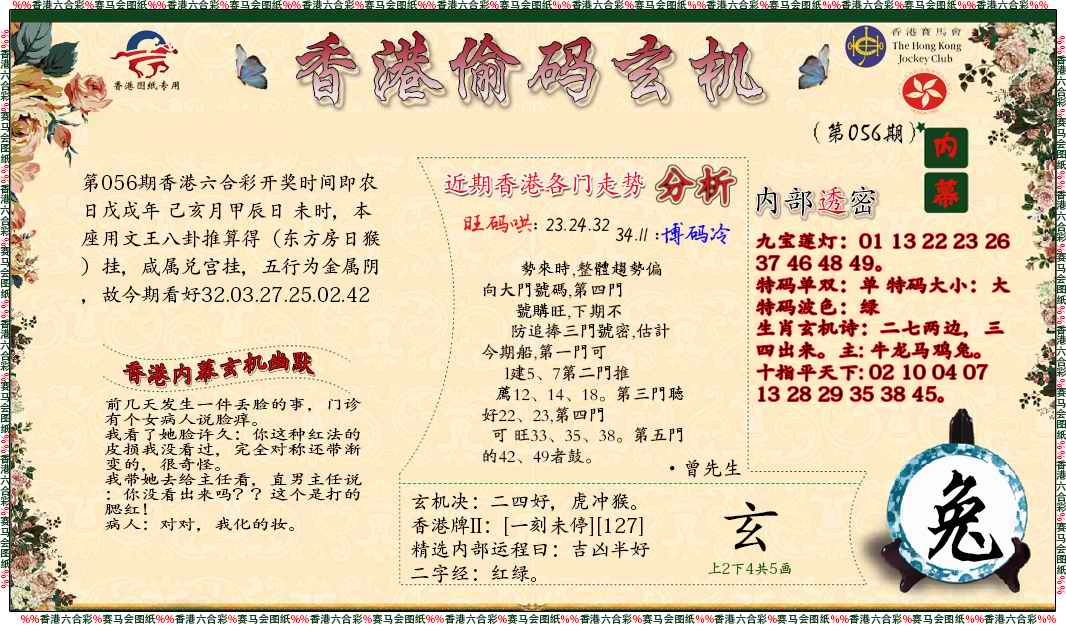 %%香港六合彩%赛马会图纸%%香港六合彩%赛马会图纸%%香港六合彩%赛马会图纸%%香港六合彩%赛马会图纸%%香港六合彩%赛马会图纸%%香港六合彩%赛马会图纸%%香港六合彩%赛马会图纸%%香港六合彩%%
香港图纸专用
香港偷码玄机
香港賽馬會
The Hong Kong
Jockey Club
(第056期)
内
幕
第056期香港六合彩开奖时间即农
日戊戌年 己亥月甲辰日 未时，本
座用文王八卦推算得（东方房日猴
）挂，咸属兑宫挂，五行为金属阴
，故今期看好32.03.27.25.02.42
香港内幕玄机幽默
前几天发生一件丢脸的事，门诊
有个女病人说脸痒。
我看了她脸许久：你这种红法的
皮损我没看过，完全对称还带渐
变的，很奇怪。
我带她去给主任看，直男主任说
：你没看出来吗？？这个是打的
腮红！
病人：对对，我化的妆。
近期香港各门走势 分析
旺码哄: 23.24.32
34.11 :博码冷
勢來時,整體趨勢偏
向大門號碼,第四門
號購旺,下期不
防追捧三門號密,估計
今期船,第一門可
1建5、7第二門推
薦12、14、18。第三門聽
好22、23,第四門
可 旺33、35、38。第五門
的42、49者鼓。
·曾先生
玄机决：二四好，虎冲猴。
香港牌II：[一刻未停][127]
精选内部运程曰：吉凶半好
二字经：红绿。
玄
上2下4共5画
内部透密
九宝莲灯：01 13 22 23 26
37 46 48 49。
特码单双：单 特码大小：大
特码波色：绿
生肖玄机诗：二七两边，三
四出来。主: 牛龙马鸡兔。
十指平天下: 02 10 04 07
13 28 29 35 38 45。
兔
%%香港六合彩%赛马会图纸%%香港六合彩%赛马会图纸%%香港六合彩%赛马会图纸%%香港六合彩%赛马会图纸%%香港六合彩%赛马会图纸%%香港六合彩%赛马会图纸%%香港六合彩%赛马会图纸%%香港六合彩%%